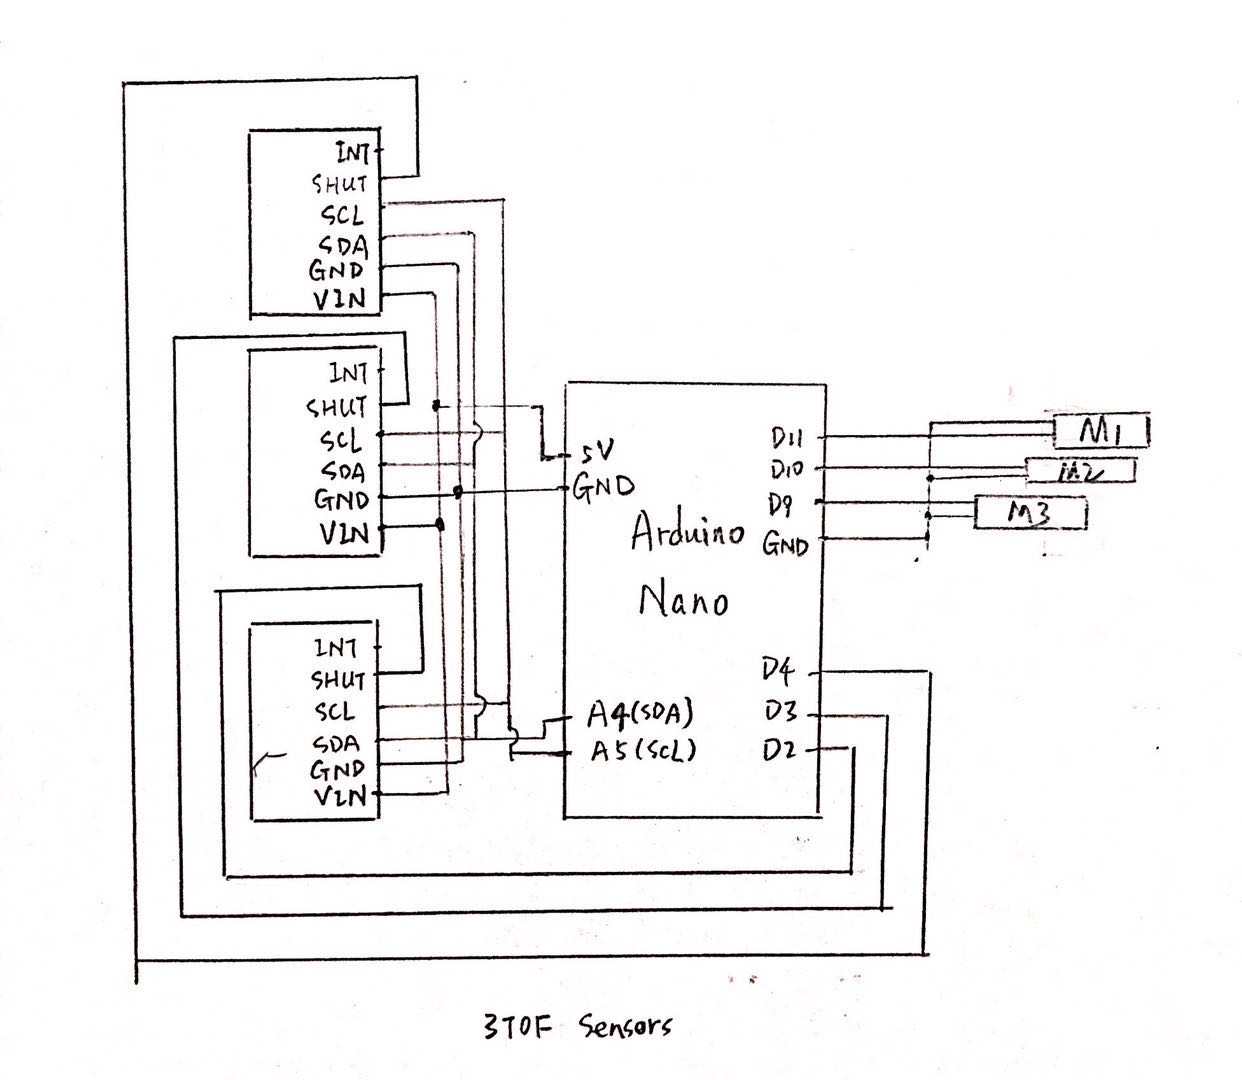 INT
SHUT
SCL
SDA
GND
VIN
INT
SHUT
SCL
SDA
GND
VIN
INT
SHUT
SCL
SDA
GND
VIN
5V
GND
A4(SDA)
A5(SCL)
Arduino
Nano
D11
D10
D9
GND
D4
D3
D2
M1
M2
M3
3TOF Sensors